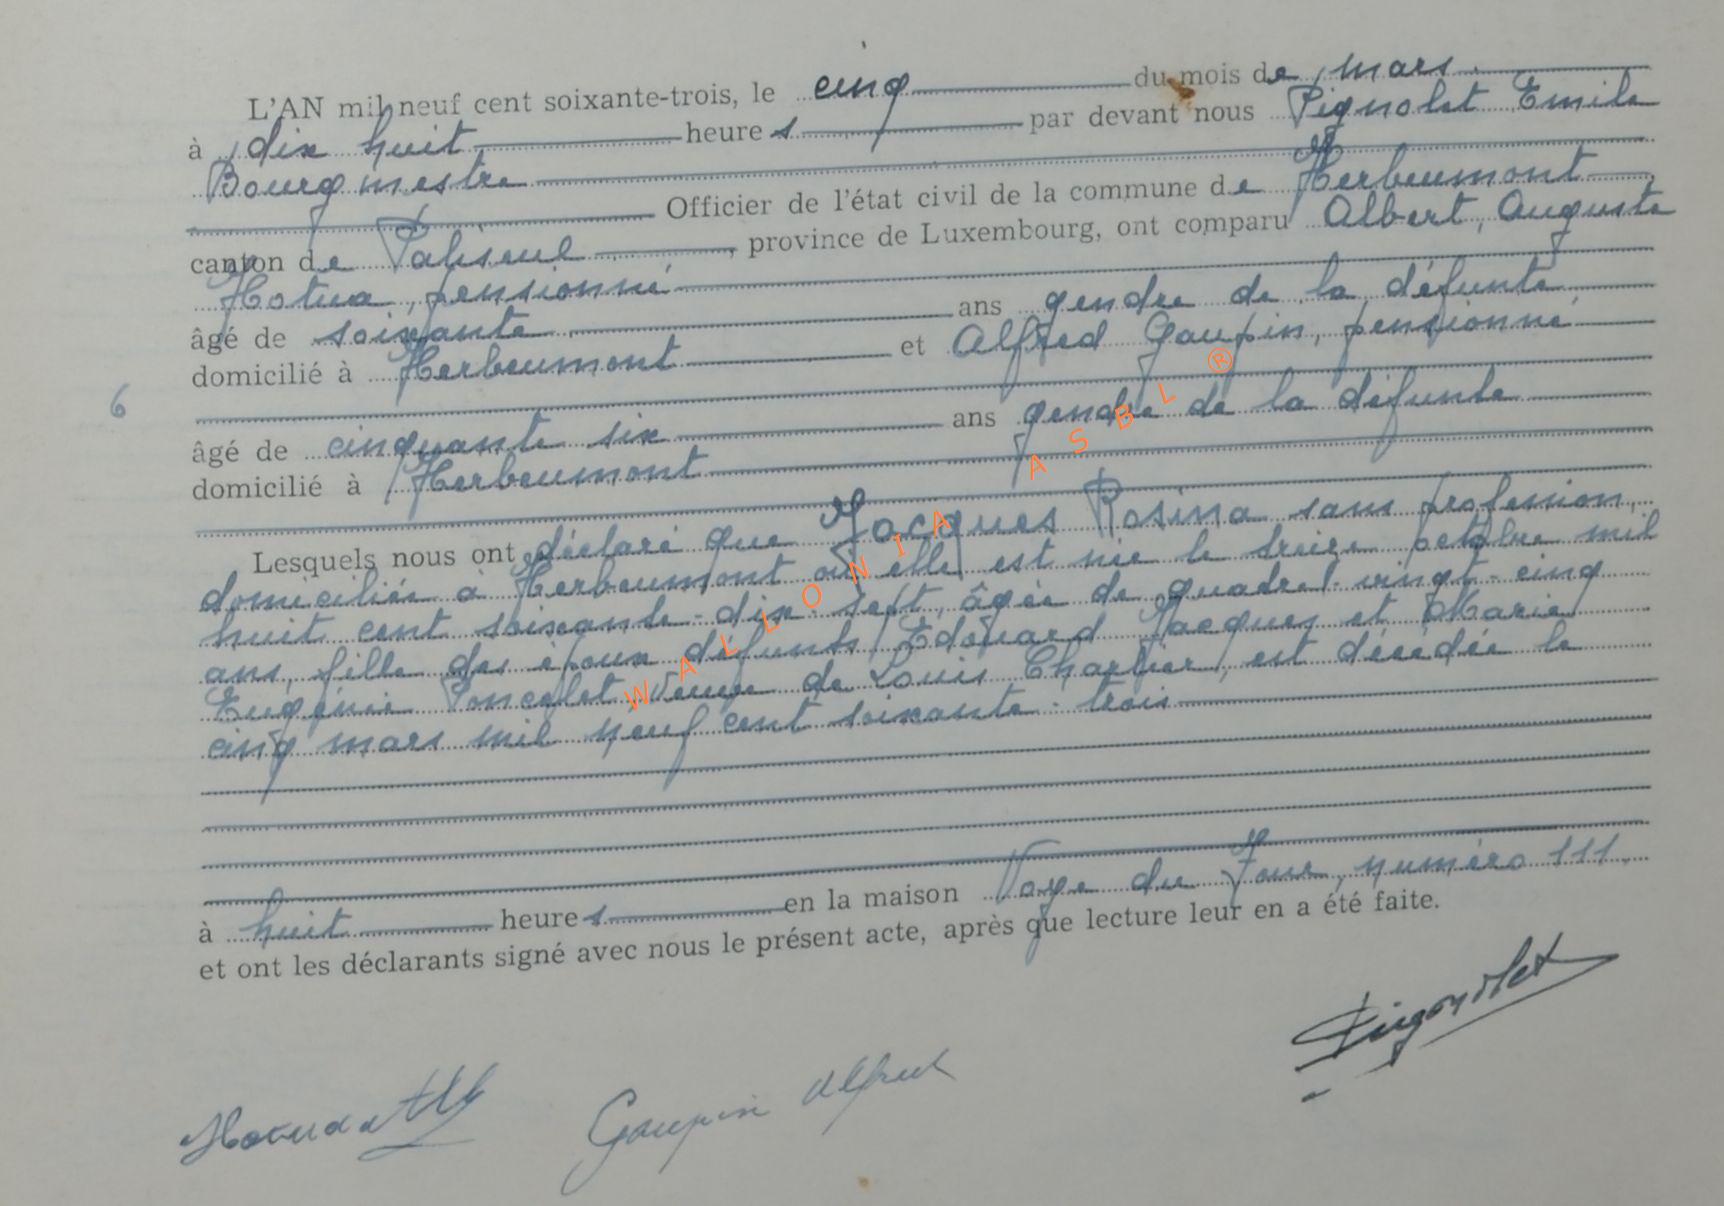 L'AN mil neuf cent soixante-trois, le cinq du mois de mars
à dix huit heures par devant nous Pignolet Emile
Bourgmestre
Officier de l'état civil de la commune de Herbeumont
canton de Paliseul, province de Luxembourg, ont comparu Albert, Auguste
Hotua, pensionné
âgé de soixante ans gendre de la défunte
domicilié à Herbeumont et Alfred Gaupin, pensionné
6
âgé de cinquante six ans gendre de la défunte
domicilié à Herbeumont
Lesquels nous ont déclaré que Jacques Rosina sans profession,
domiciliée à Herbeumont où elle est née le treize octobre mil
huit cent soixante-dix-sept, âgée de quatre-vingt-cinq
ans, fille des époux défunts Edouard Jacques et Marie
Eugénie Poncelet, veuve de Louis Charlier, est décédée le
cinq mars mil neuf cent soixante-trois
à huit heures en la maison Voye du Four, numéro 111.
et ont les déclarants signé avec nous le présent acte, après que lecture leur en a été faite.
Pignolet
Gaupin Alfred
WALLONIA ASBL ®